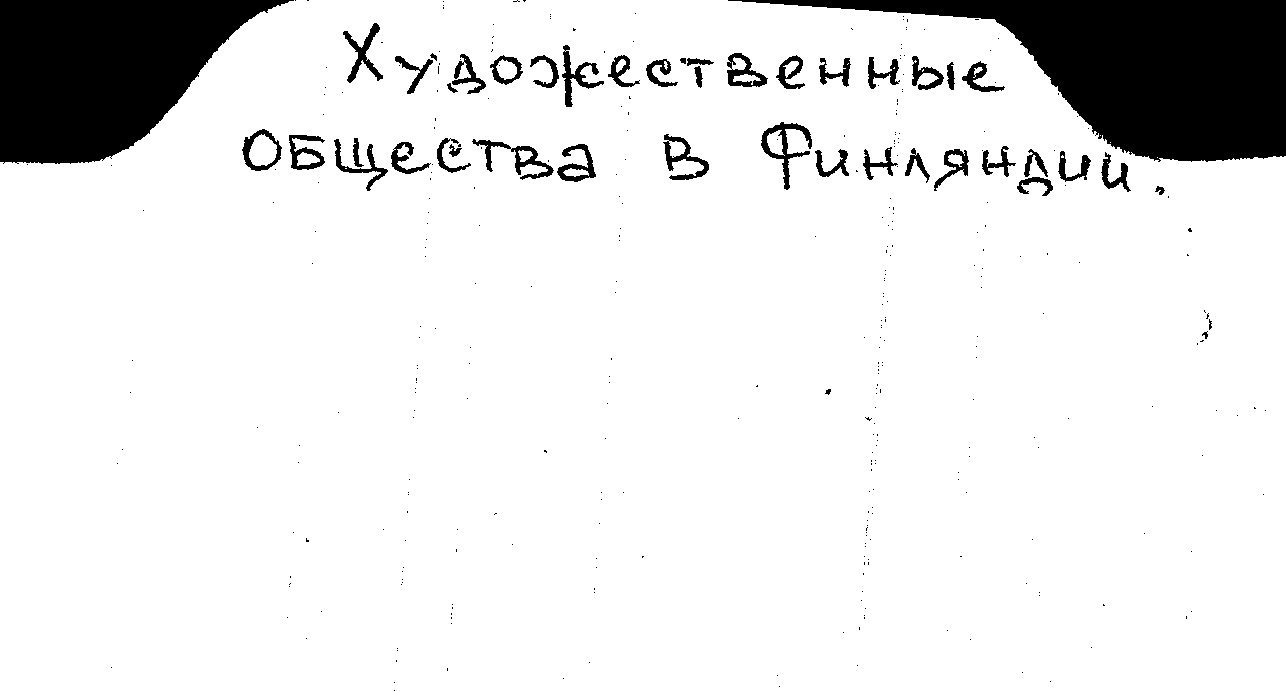 Художественные
общества в Финляндии.